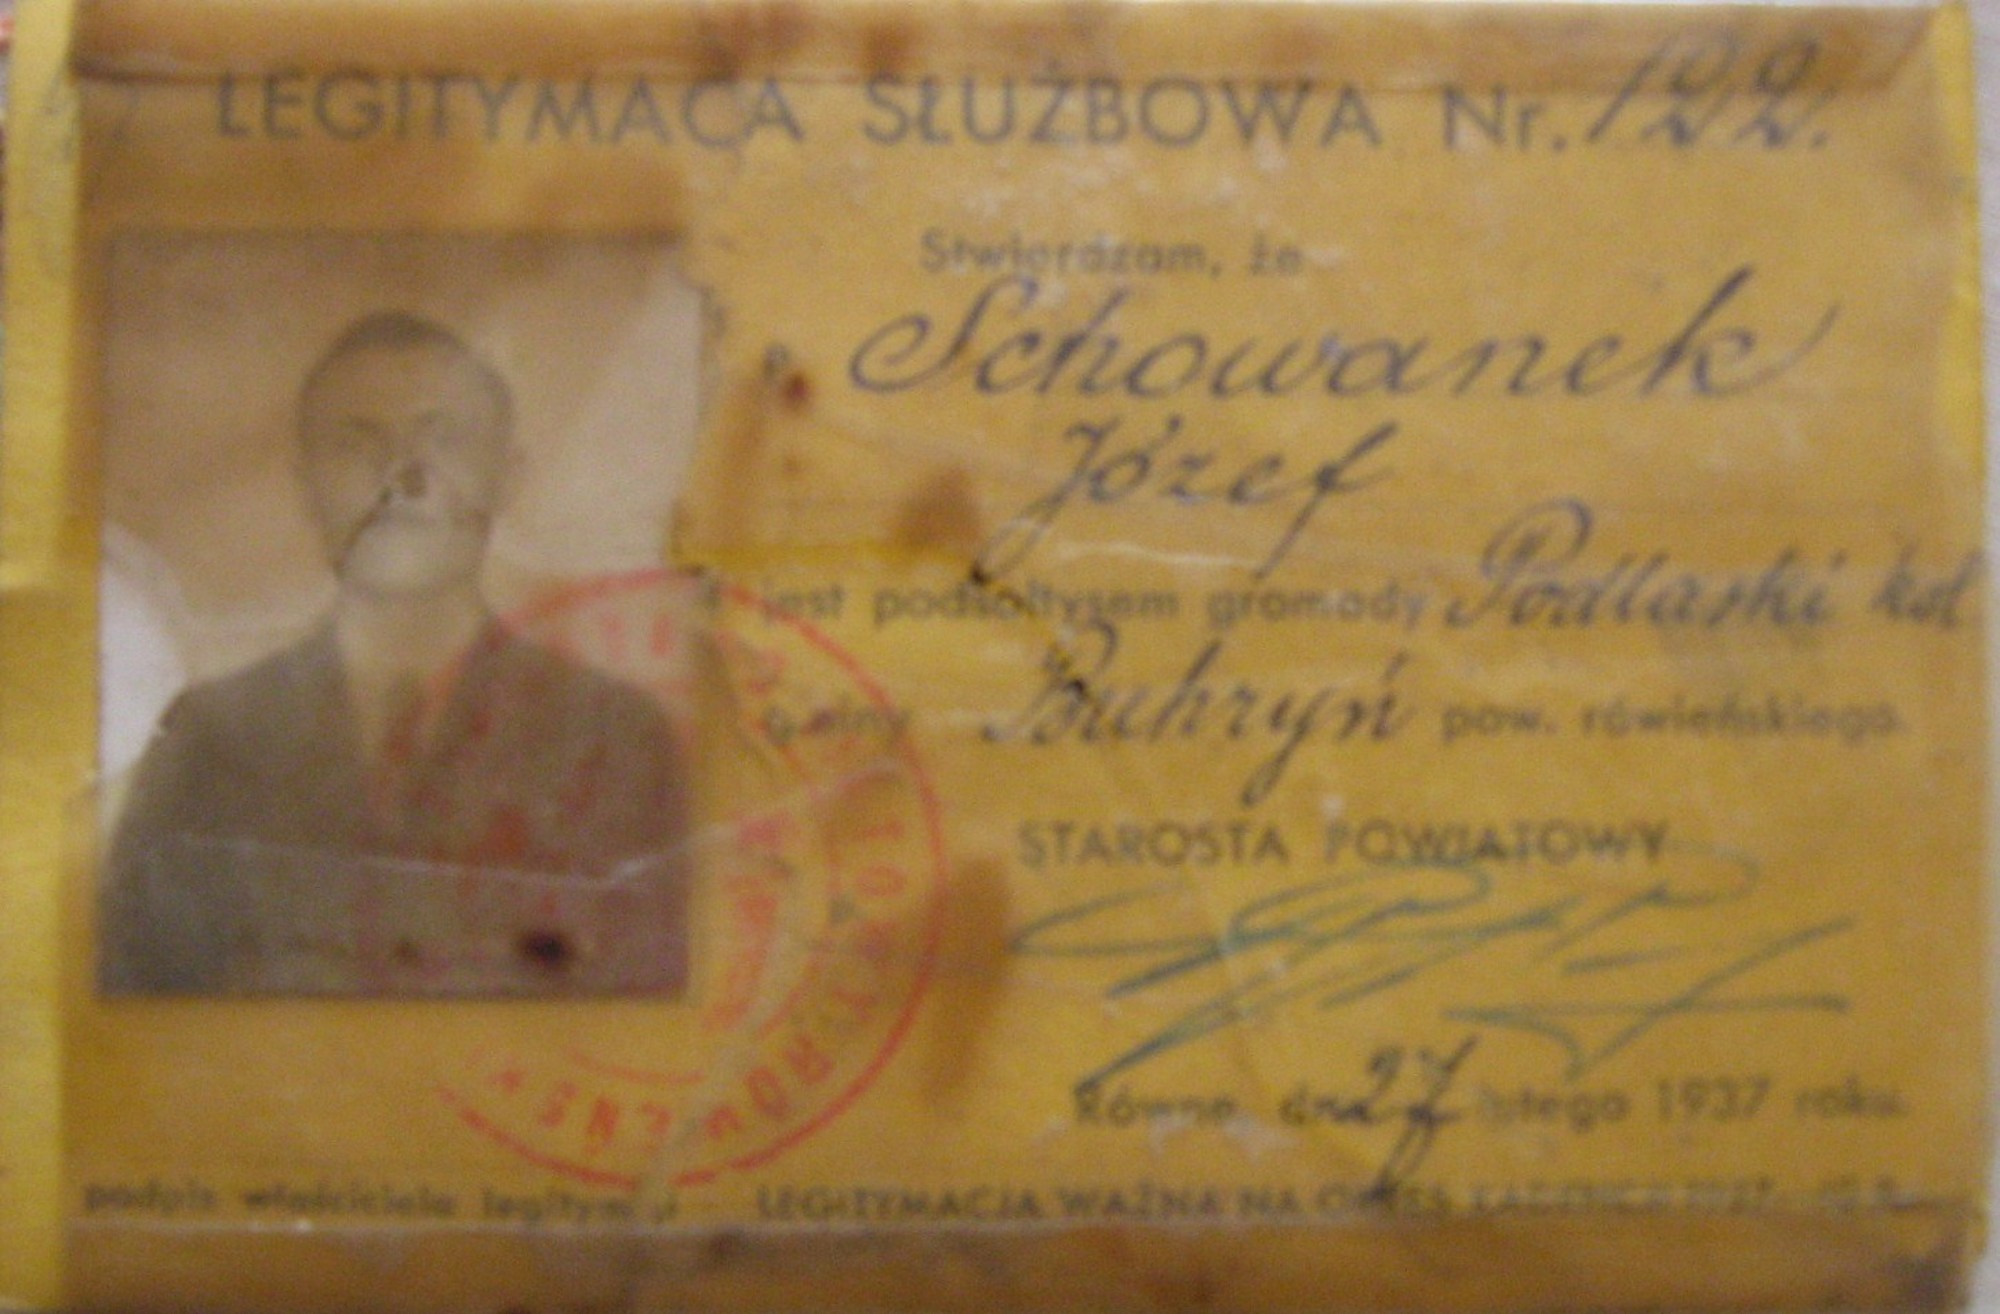 LEGITYMACA SŁUŻBOWA Nr. 122.
Stwierdzam, że
p. Schowanek
Józef
jest podsołtysem gromady Podlaski kol
gminy Buhryń pow. rówieńskiego.
STAROSTA POWIATOWY
Równe, dn. 27 lutego 1937 roku.
podpis właściciela legitymacji
LEGITYMACJA WAŻNA NA OKRES KADENCJI